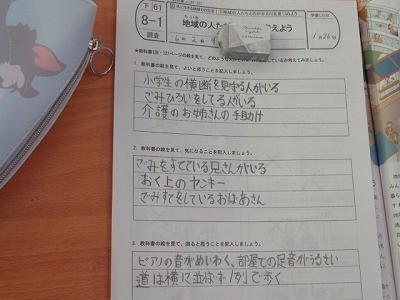 下 61
8-1
調査
地域の人た
えよう
1. 教科書の絵を見て、よいと思うことを記入しましょう。
小学生の横断を見守る人がいる
ごみひろいをしてる人がいる
介護のお姉さんの手助け
2. 教科書の絵を見て、気になることを記入しましょう。
ごみをすてている兄さんがいる
おく上のヤンキー
ごみすてをしているおばあさん
3. 教科書の絵を見て、困ると思うことを記入しましょう。
ピアノの音がめいわく、部屋での足音がうるさい
道は横に並ばず1列で歩く